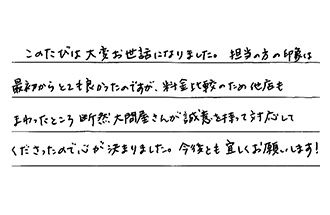 このたびは大変お世話になりました。担当の方の印象は
最初からとても良かったのですが、料金比較のため他店も
まわったところ断然大問屋さんが誠意を持って対応して
くださったので心が決まりました。今後とも宜しくお願いします!